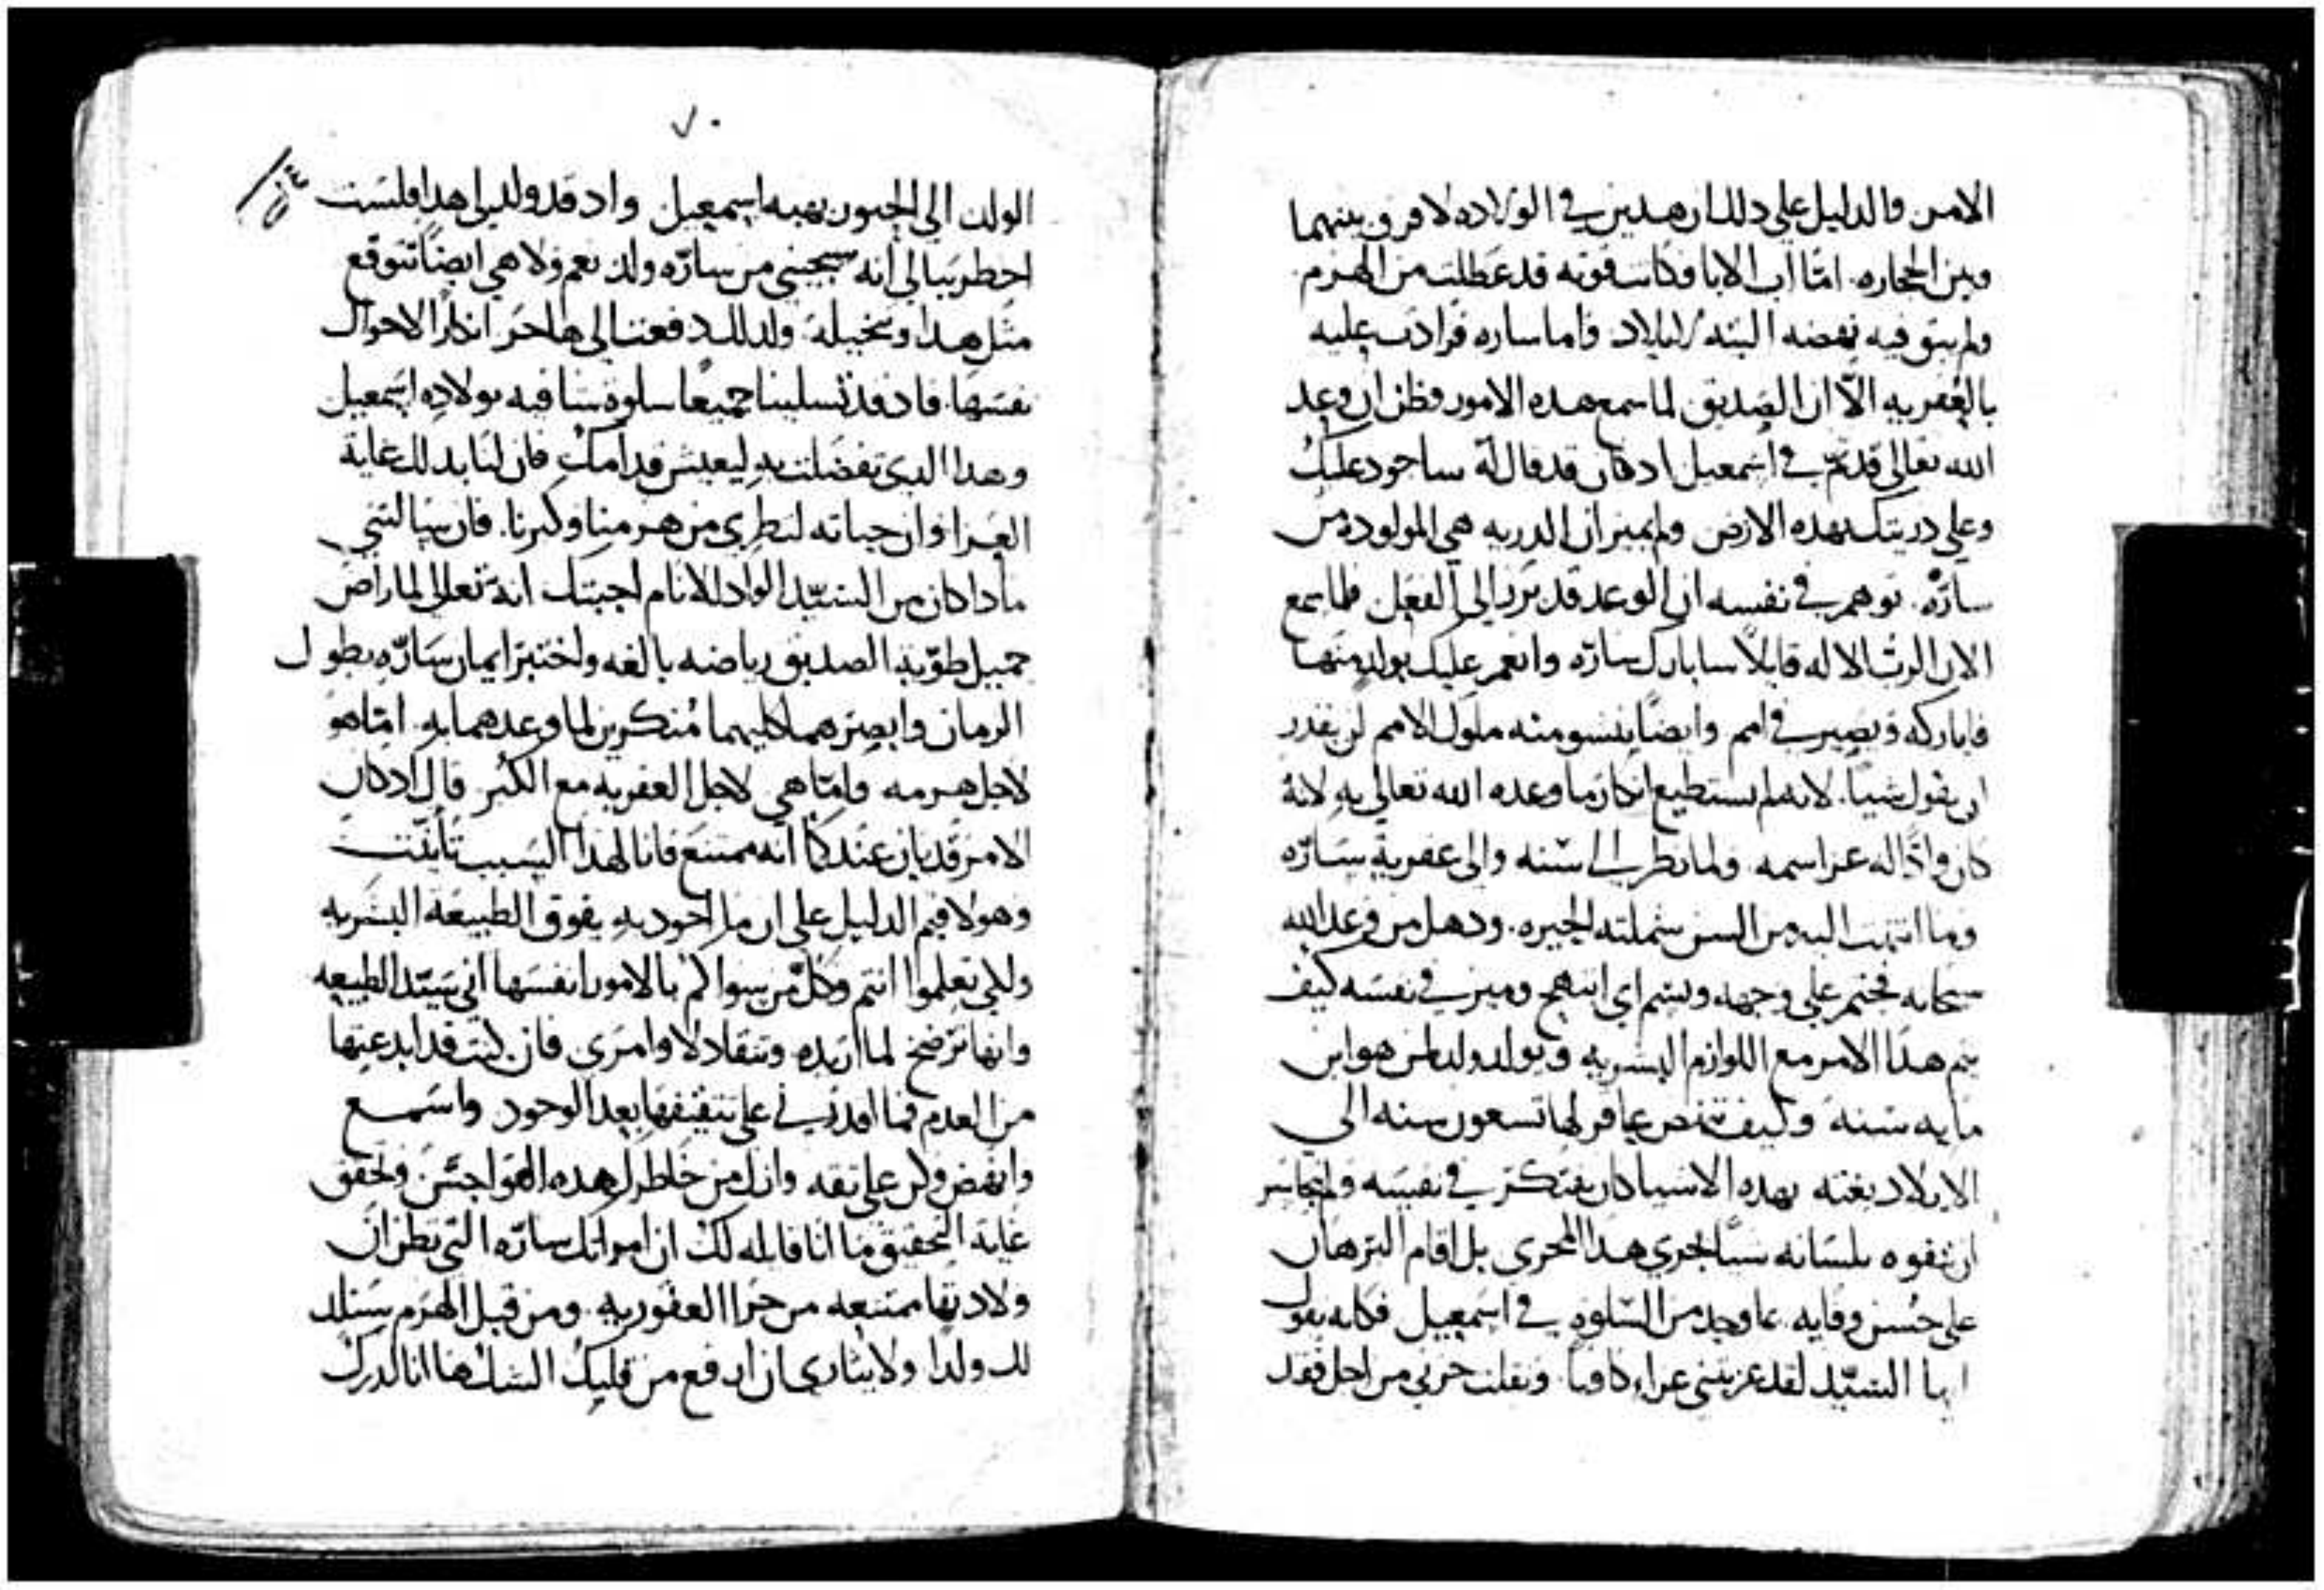 الامر والدليل على دلك ان هدين في الولاده لا فرق بينهما
وبين الحجاره. امّا اب الابا فكانت قوته قد عطلت من الهرم
ولم يبق فيه نهضه البته للايلاد واما ساره فزادت عليه
بالعُقريه الّا ان الصديق لما سمع هده الامور وظن ان وعد
الله تعالى قد تم في اسمعيل اد كان قد قال له ساجود عليك
وعلى دريتك بهده الارض ولم يميز ان الدريه هي المولوده من
سارّه. توهم في نفسه ان الوعد قد برز الى الفعل فلما سمع
الان الربّ الاله قايلًا سابارك سارّه وانعم عليك بولد منها
فاباركه ويصير في امم وايضًا ينسو منه ملوك الامم لن يقدر
ان يقول شيا. لانه لم يستطيع انكار ما وعده الله تعالى به لانه
كان وادًّا له عز اسمه ولما نظر الى سنه والى عقرية سارّه
وما انتهت اليه من السن شملته الحيره. ودهل من وعد الله
سبحانه فختم على وجهه وبسم اي ابتهج وميز في نفسه كيف
يتم هدا الامر مع اللوازم البشريه ويولد ولد لمن هو ابن
مايه سنه وكيف تنهض عاقر لها تسعون سنه الى
الايلاد بغته بهده الاشيا كان يفتكر في نفسه ولم يجاسر
ان يتفوه بلسانه شيًا يجري هدا المجرى بل اقام البرهان
على حُسن وفايه بما وجد من السلوة في اسمعيل فكانه يقول
ايها السيّد لقد عزيتني عزاء كافيا ونقلت حزني من اجل فقد
٧٠
الولد الى الحبور بهبه اسمعيل واد قد ولد لي هدا فلست
اخطر ببالي انه سيجيني من سارّه ولد نعم ولا هي ايضًا تتوقع
مثل هدا وتخيله ولدلك دفعت الي هاجر انكارًا لاحوال
نفسها. فاد قد تسلينا جميعًا سلوة شافيه بولاده اسمعيل
وهدا الدي تفضلت به ليعيش قدامك فان لنا بدلك غاية
العزا وان حياته لتطري من هرمنا وكبرنا. فان سالتني
مادا كان من السيّد الواد للانام اجبتك انه تعالى لما راض
جميل طوّية الصديق رياضه بالغه واختبر ايمان سارّه بطول
الزمان وابصرهما كليهما مُنكرين لما وعدهما به. امّا هو
لاجل هرمه وامّا هي لاجل العقريه مع الكبر قال اد كان
الامر قد بان عندكما انه ممتنع فانا لهدا السبب تأنّيت
وهولا فهم الدليل على ان ما اجود به يفوق الطبيعة البشريه
ولكي تعلموا انتم وكل من سواكم بالامور نفسها اني سيّد الطبيعه
وانها ترضخ لما اريده وتنقاد لاوامري فان كنت قد ابدعتها
من العدم فما اقدرني على تثقيفها بعد الوجود واسمع
وانهض وكن على ثقه وازل من خاطرك هده الهواجس وتحقق
غاية التحقيق ما انا قايله لك ان امراتك سارّه التي تظن ان
ولادتها ممتنعه من جرا العقوريه. ومن قبل الهرم ستلد
لك ولدا ولايثاري ان ادفع من قلبك الشك ها انا ادرك